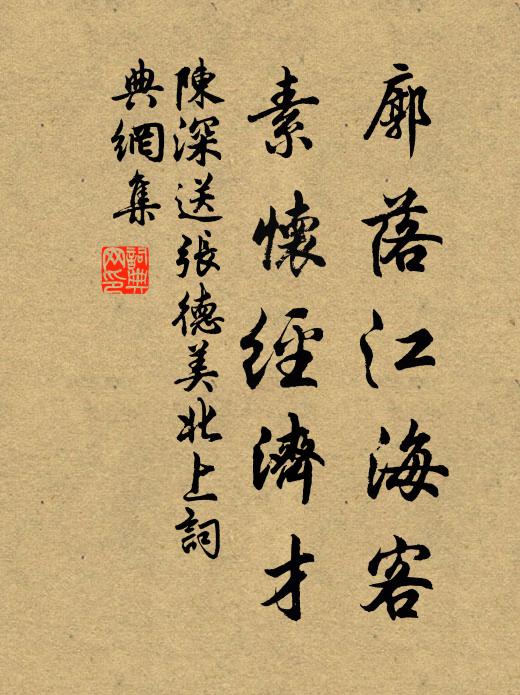 廓落江海客
素懷經濟才
陳深送張德美北上詞
典網集
詞典
网印